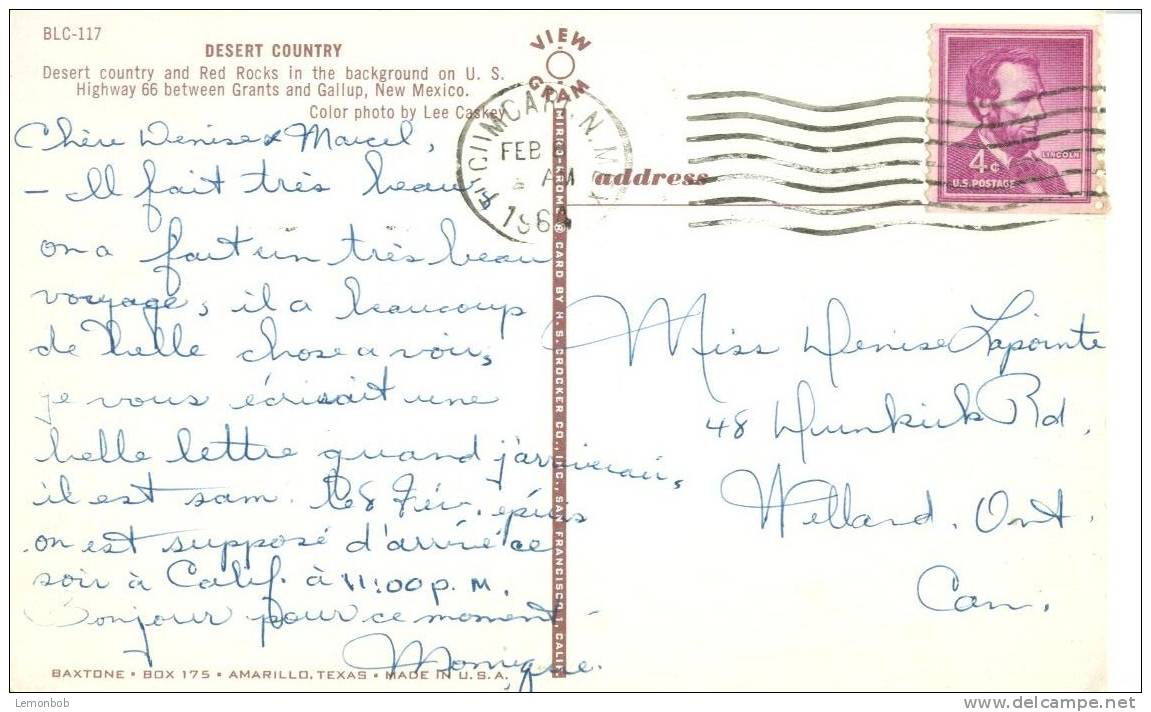 BLC-117
DESERT COUNTRY
Desert country and Red Rocks in the background on U. S.
Highway 66 between Grants and Gallup, New Mexico.
Color photo by Lee Caskey
Chère Denise & Marcel,
- Il fait très beau
on a fait un très beau
voyage, il a beaucoup
de belle chose a voir,
je vous écrirait une
belle lettre quand j'arriverai,
il est sam. le 8 Fév. épuis
on est supposé d'arrivé ce
soir à Calif. à 11:00 P.M.
Bonjour pour ce moment
Monique.
BAXTONE • BOX 175 • AMARILLO, TEXAS • MADE IN U.S.A.
VIEW
GRAM
MIRRO-KROME® CARD BY H. S. CROCKER CO., INC., SAN FRANCISCO 1, CALIF.
TUCUMCARI, N.MEX
FEB
AM
1964
address
4¢
LINCOLN
U.S. POSTAGE
Miss Denise Lapointe
48 Dunkirk Rd.
Welland. Ont.
Can.
Lemonbob
www.delcampe.net